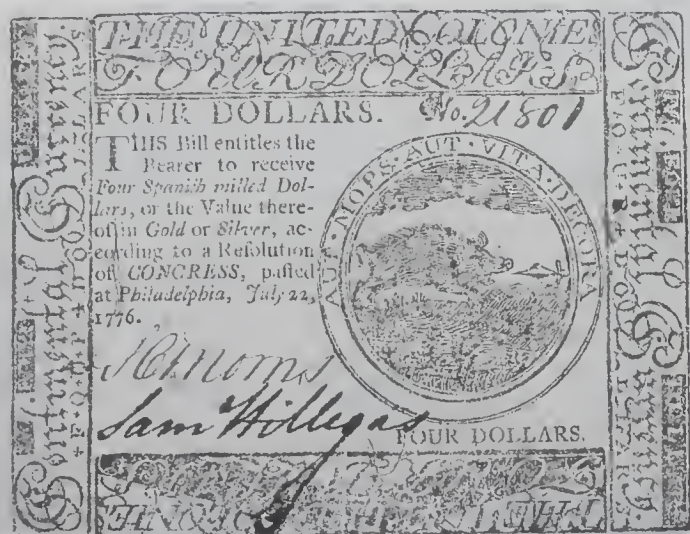 THE UNITED COLONIES
FOUR DOLLARS
FOUR DOLLARS. No. 21801
THIS Bill entitles the
Bearer to receive
Four Spanish milled Dol-
lars, or the Value there-
of in Gold or Silver, ac-
cording to a Resolution
of CONGRESS, passed
at Philadelphia, July 22,
1776.
AUT · MORS · AUT · VITA · DECORA
Sam Hillegas
FOUR DOLLARS.
Continental Currency
FOUR DOLLARS
Continental Currency
FOUR DOLLARS